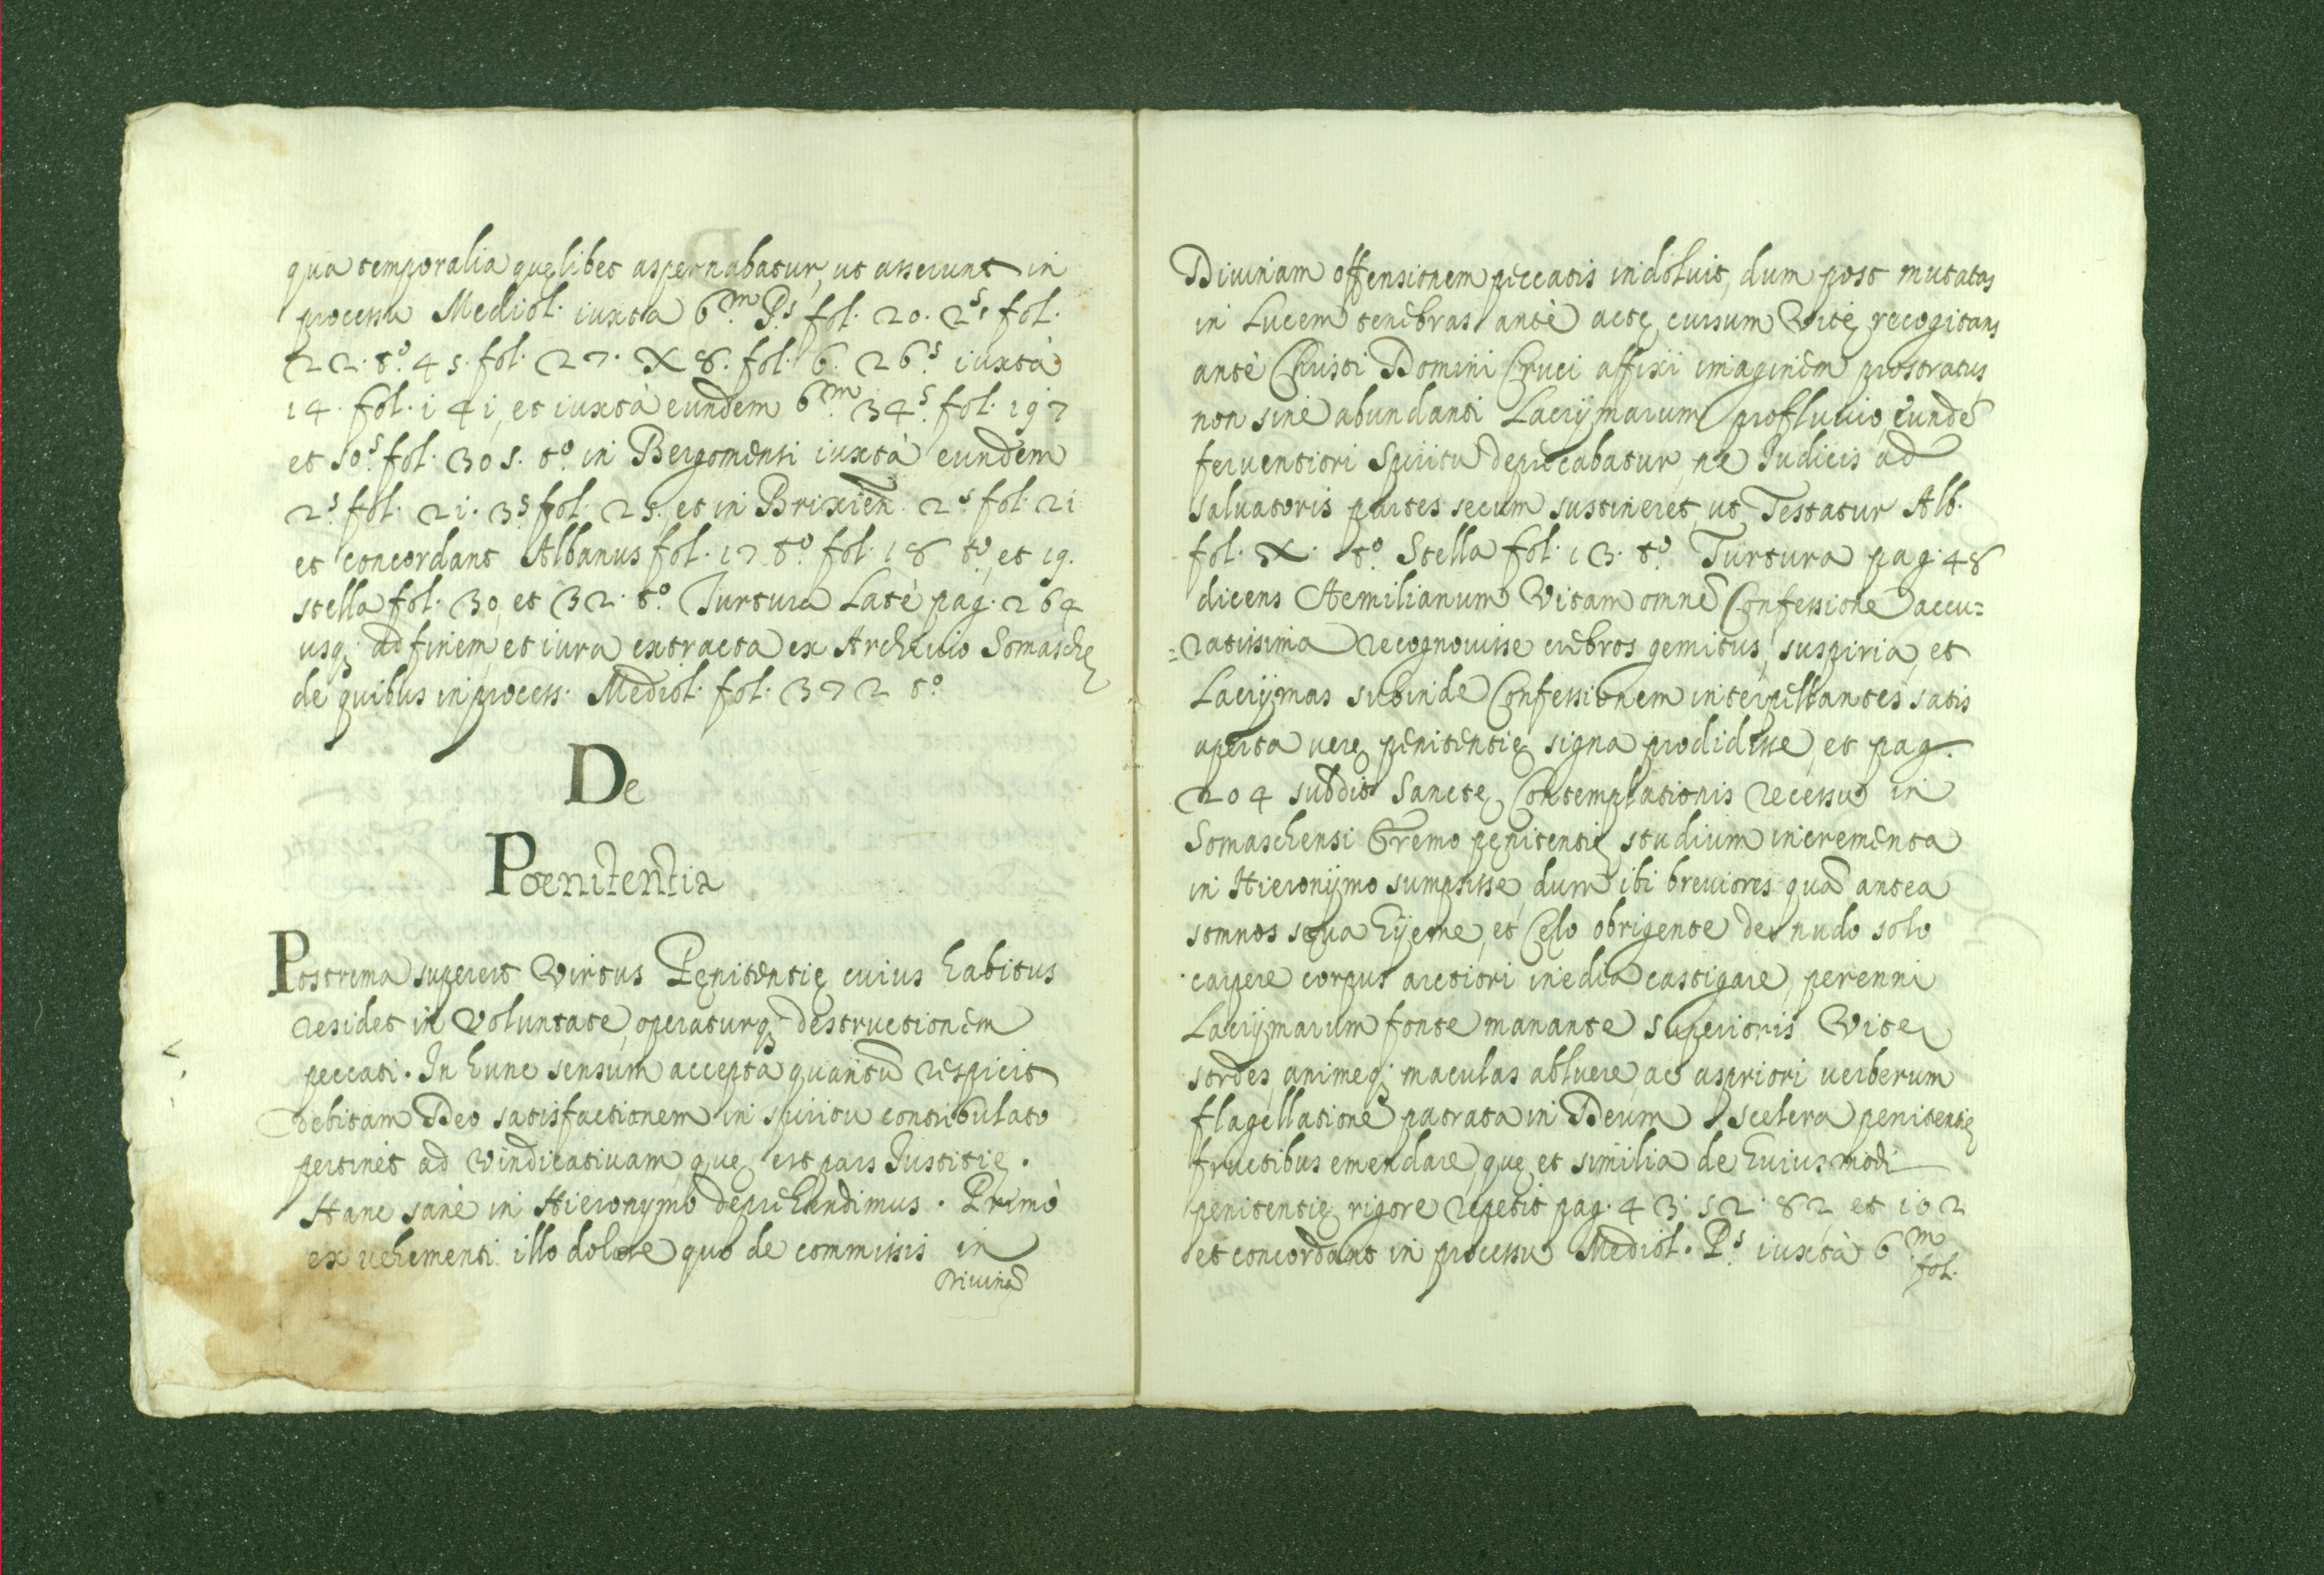 qua temporalia quęlibet aspernabatur, ut asserunt in
processu Mediol. iuxta 6.m P.s fol. 20. 2.s fol.
22. t.o 4 s. fol. 27. X 8. fol. 6. 26.s iuxtà
14. fol. 141, et iuxtà eundem 6.m 34.s fol. 197
et 50.s fol. 305. t.o in Bergomensi iuxtà eundem
2.s fol. 21. 3.s fol. 25. et in Brixien. 2.s fol. 21
et concordant Albanus fol. 17 t.o fol. 18 t.o, et 19.
stella fol. 30, et 32. t.o Turtura Latè pag. 264
usq; ad finem, et iura extracta ex Archiuio Somaschę
de quibus in process. Mediol. fol. 372 t.o
De
Poenitentia
Postrema superest Virtus Pęnitentię cuius habitus
residet in Voluntate, operaturq; destructionem
peccati. In hunc sensum accepta quantũ respicit
debitam Deo satisfactionem in spiritu contribulato
pertinet ad Vindicatiuam, quę est pars Iustitię.
Hanc sanè in Hieronymo deprehendimus. Primò
ex uehementi illo dolore quo de commissis in
Diuinã
Diuinam offensionem peccatis indoluit, dum post mutatas
in Lucem tenebras antè actę cursum Vitę recogitans
antè Christi Domini Cruci affixi imaginem prostratus
non sine abundanti Lacrÿmarum profluuio, eundẽ
feruentiori Spiritu deprecabatur, ne Iudicis ad
saluatoris partes secum sustineret, ut Testatur Alb.
fol. X. t.o Stella fol. 13. t.o Turtura pag. 48
dicens Aemilianum Vitam omnẽ Confessione accu=
=ratissima recognouisse crebros gemitus, suspiria, et
Lacrÿmas subinde Confessionem interpellantes, satis
aperta uerę pęnitentię signa prodidisse, et pag.
204 subdit Sanctę Contemplationis recessu in
Somaschensi Eremo pęnitentię studium incrementa
in Hieronÿmo sumpsisse, dum ibi breuiores quã antea
somnos sęua hÿeme, et Cęlo obrigente de nudo solo
carpere corpus arctiori inedia castigare, perenni
Lacrÿmarum fonte manante superioris Vitę
sordes, animeq; maculas abluere, ac aspriori uerberum
flagellatione patrata in Deum scelera pęnitentię
fructibus emendare, quę et similia de huiusmodi
pęnitentię rigore repetit pag. 43. 52. 82 et 102
et concordant in processu Mediol. P.s iuxtà 6.m
fol.